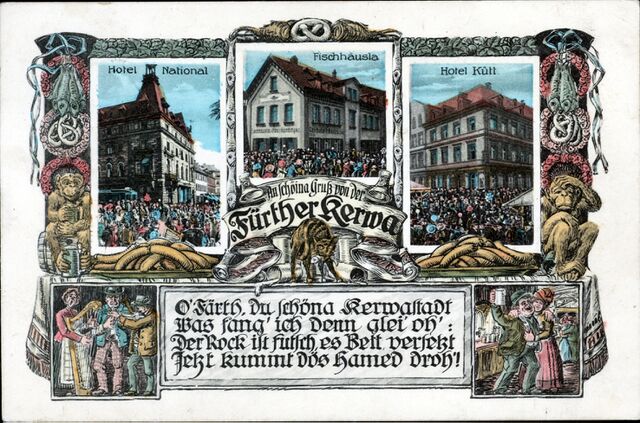 Hotel National
Fischhäusla
Hotel Kütt
An schöina Gruß von der
Further Kerwa
O' Färth, du schöna Kerwastadt
Was fang' ich denn glei oh':
Der Rock ist futsch, es Bett versetzt
Jetzt kummt dös Hamed droh'!